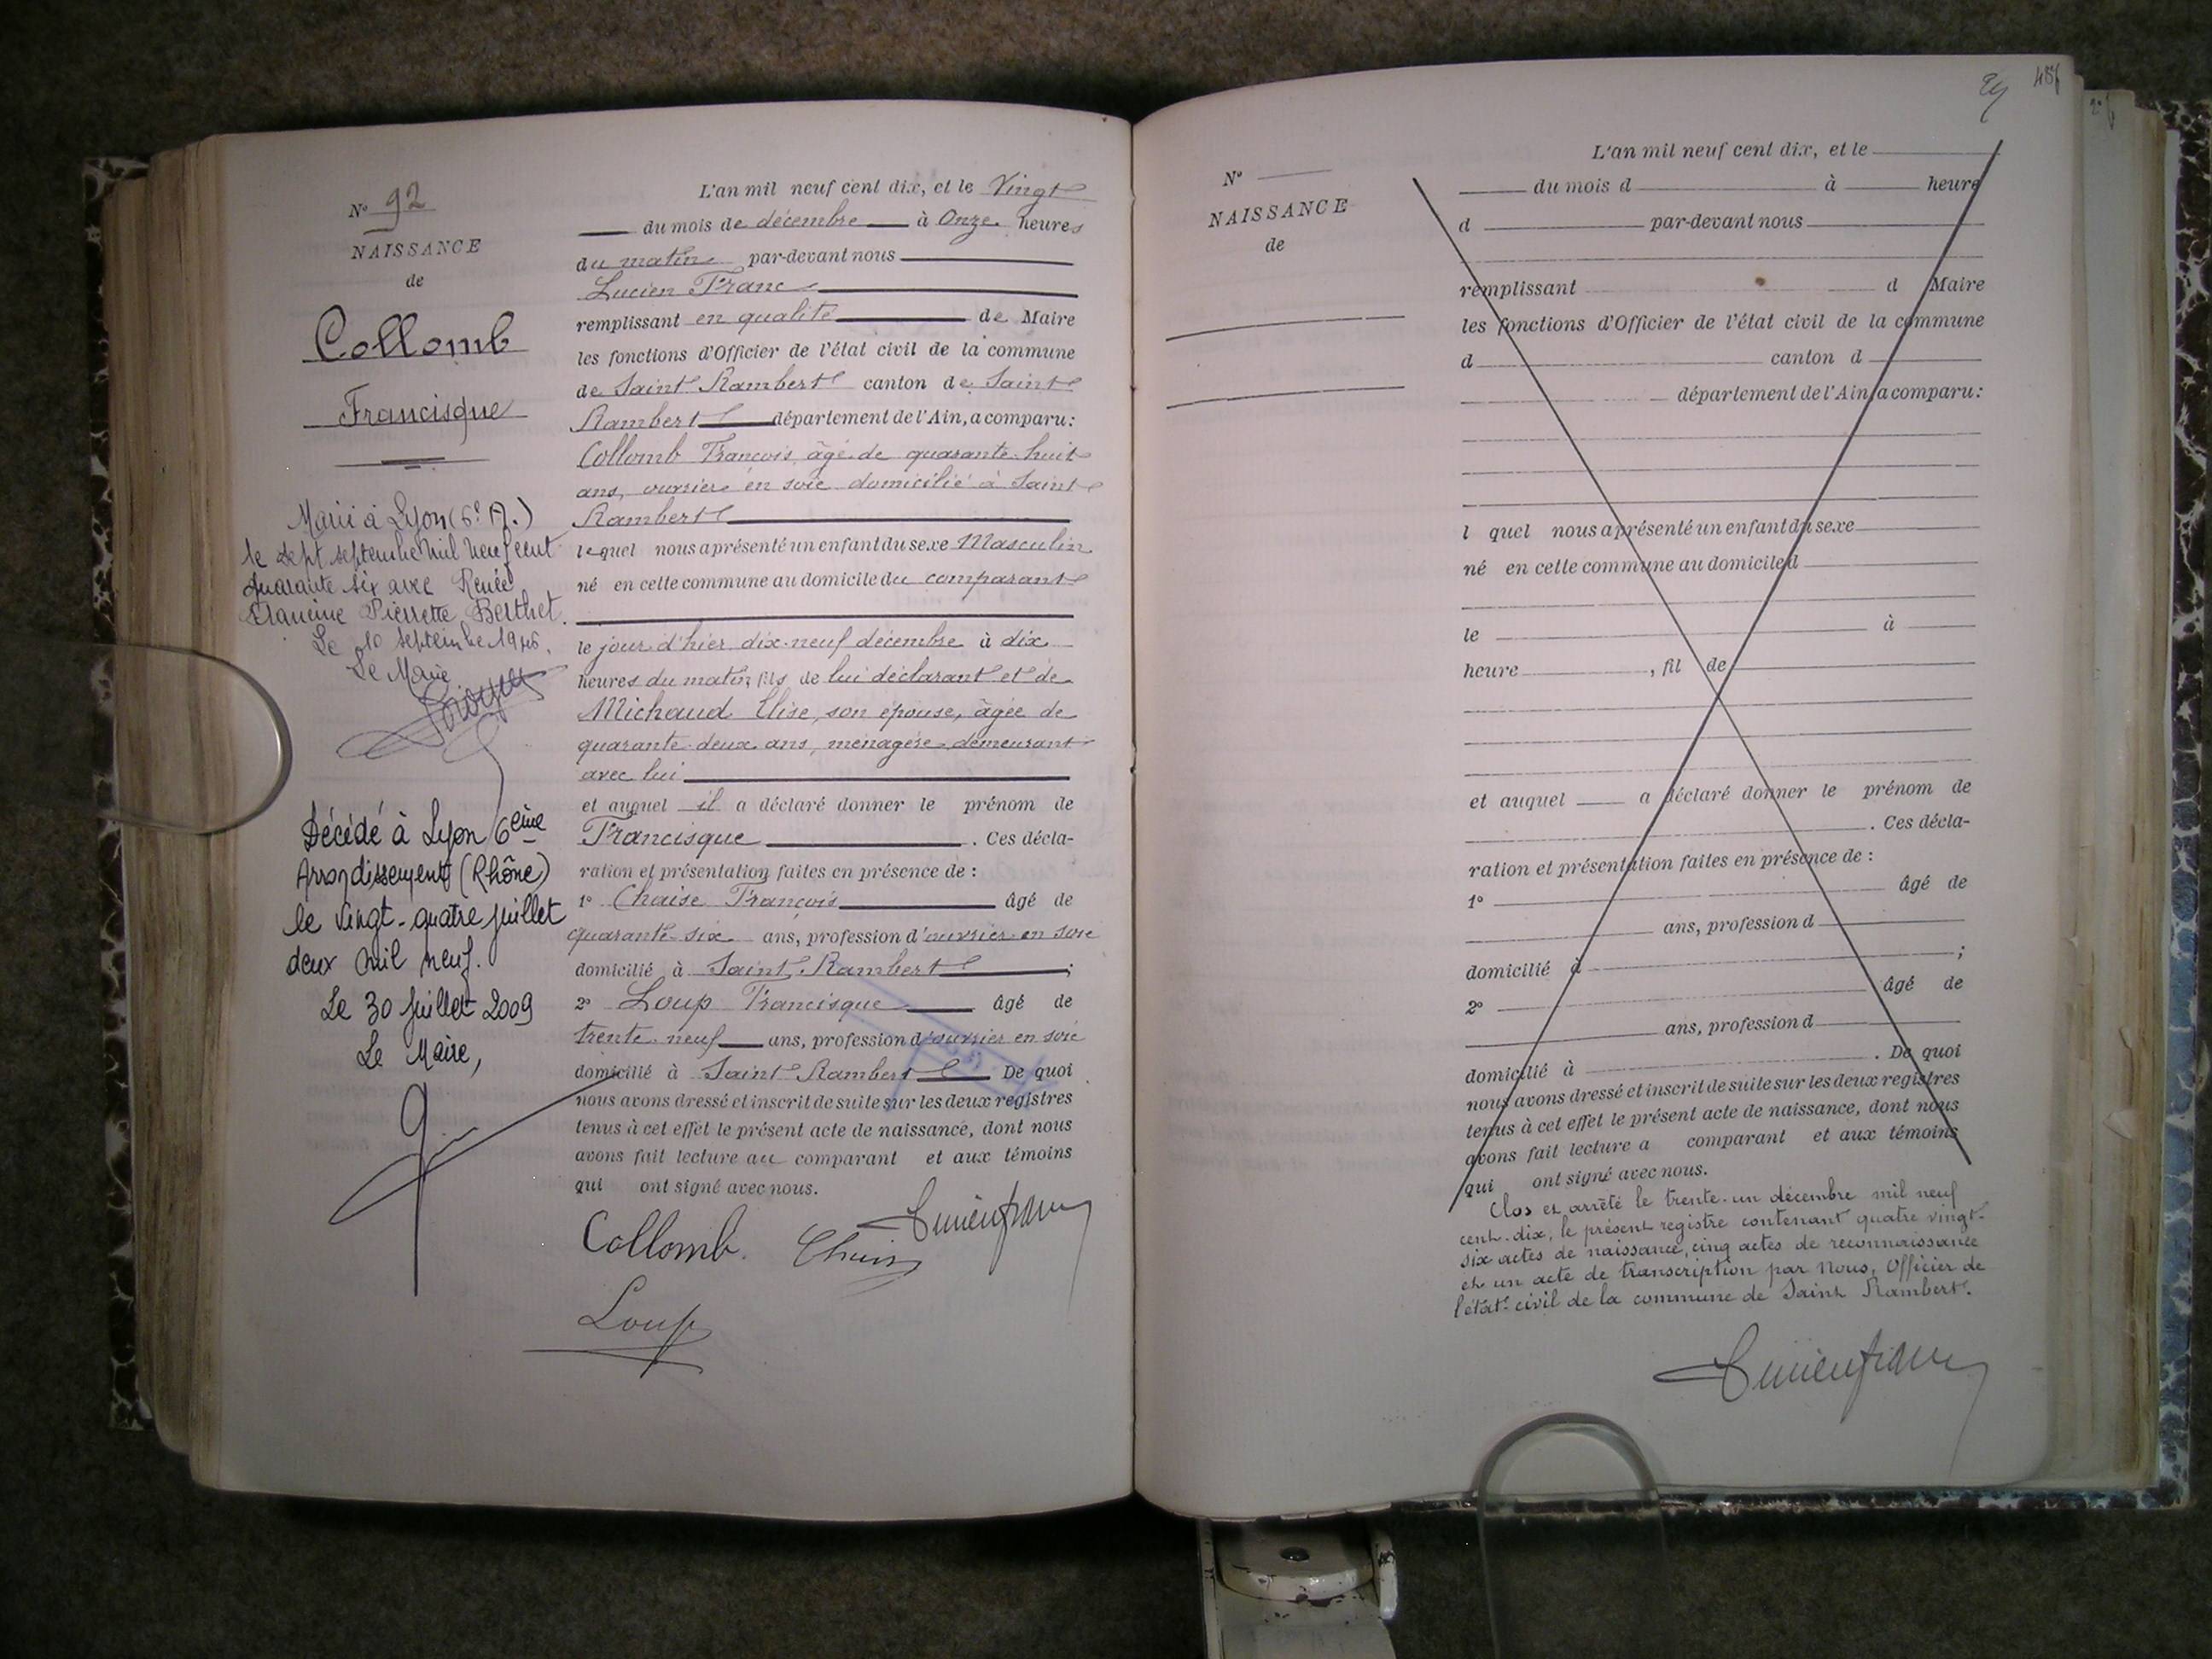 N° 92
NAISSANCE
de
Collomb
Francisque
Marié à Lyon (6e A.)
le sept septembre mil neuf cent
quarante six avec Renée
Francine Pierrette Berthet.
Le 10 septembre 1946.
Le Maire
Décédé à Lyon 6ème
Arrondissement (Rhône)
le vingt-quatre juillet
deux mil neuf.
Le 30 juillet 2009
Le Maire,
L'an mil neuf cent dix, et le Vingt
du mois de décembre à Onze heures
du matin par-devant nous
Lucien Franc
remplissant en qualité de Maire
les fonctions d'Officier de l'état civil de la commune
de Saint Rambert canton de Saint
Rambert département de l'Ain, a comparu:
Collomb François âgé de quarante-huit
ans, ouvrier en soie domicilié à Saint
Rambert
lequel nous a présenté un enfant du sexe Masculin
né en cette commune au domicile du comparant
le jour d'hier dix-neuf décembre à dix
heures du matin, fils de lui déclarant et de
Michaud Elise, son épouse, âgée de
quarante-deux ans, ménagère, demeurant
avec lui
et auquel il a déclaré donner le prénom de
Francisque. Ces décla-
ration et présentation faites en présence de :
1° Chaise François âgé de
quarante-six ans, profession d'ouvrier en soie
domicilié à Saint-Rambert ;
2° Loup Francisque âgé de
trente-neuf ans, profession d'ouvrier en soie
domicilié à Saint-Rambert De quoi
nous avons dressé et inscrit de suite sur les deux registres
tenus à cet effet le présent acte de naissance, dont nous
avons fait lecture au comparant et aux témoins
qui ont signé avec nous.
Collomb.
Loup
N°
NAISSANCE
de
L'an mil neuf cent dix, et le
du mois d à heure
d par-devant nous
remplissant d Maire
les fonctions d'Officier de l'état civil de la commune
d canton d
département de l'Ain, a comparu:
l quel nous a présenté un enfant du sexe
né en cette commune au domicile d
le à
heure , fil de
et auquel a déclaré donner le prénom de
. Ces décla-
ration et présentation faites en présence de :
1° âgé de
ans, profession d
domicilié à ;
2° âgé de
ans, profession d
domicilié à . De quoi
nous avons dressé et inscrit de suite sur les deux registres
tenus à cet effet le présent acte de naissance, dont nous
avons fait lecture a comparant et aux témoins
qui ont signé avec nous.
Clos et arrêté le trente-un décembre mil neuf
cent-dix, le présent registre contenant quatre vingt-
six actes de naissance, cinq actes de reconnaissance
et un acte de transcription par Nous, Officier de
l'état-civil de la commune de Saint Rambert.